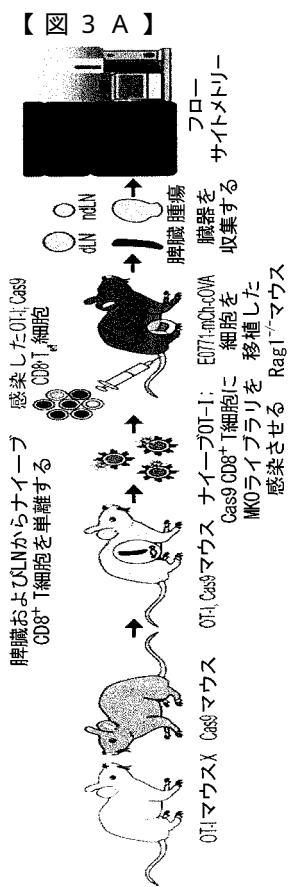 【図３Ａ】
脾臓およびLNからナイーブ
CD8⁺ T細胞を単離する
感染したOT-I; Cas9
CD8⁺ T細胞
dLN
ndLN
脾臓
腫瘍
OT-IマウスX
Cas9マウス
OT-I; Cas9マウス
ナイーブOT-I;
Cas9 CD8⁺ T細胞に
MKOライブラリを
感染させる
E0771-mCh-cOVA
細胞を
移植した
Rag1⁻/⁻マウス
臓器を
収集する
フロー
サイトメトリー